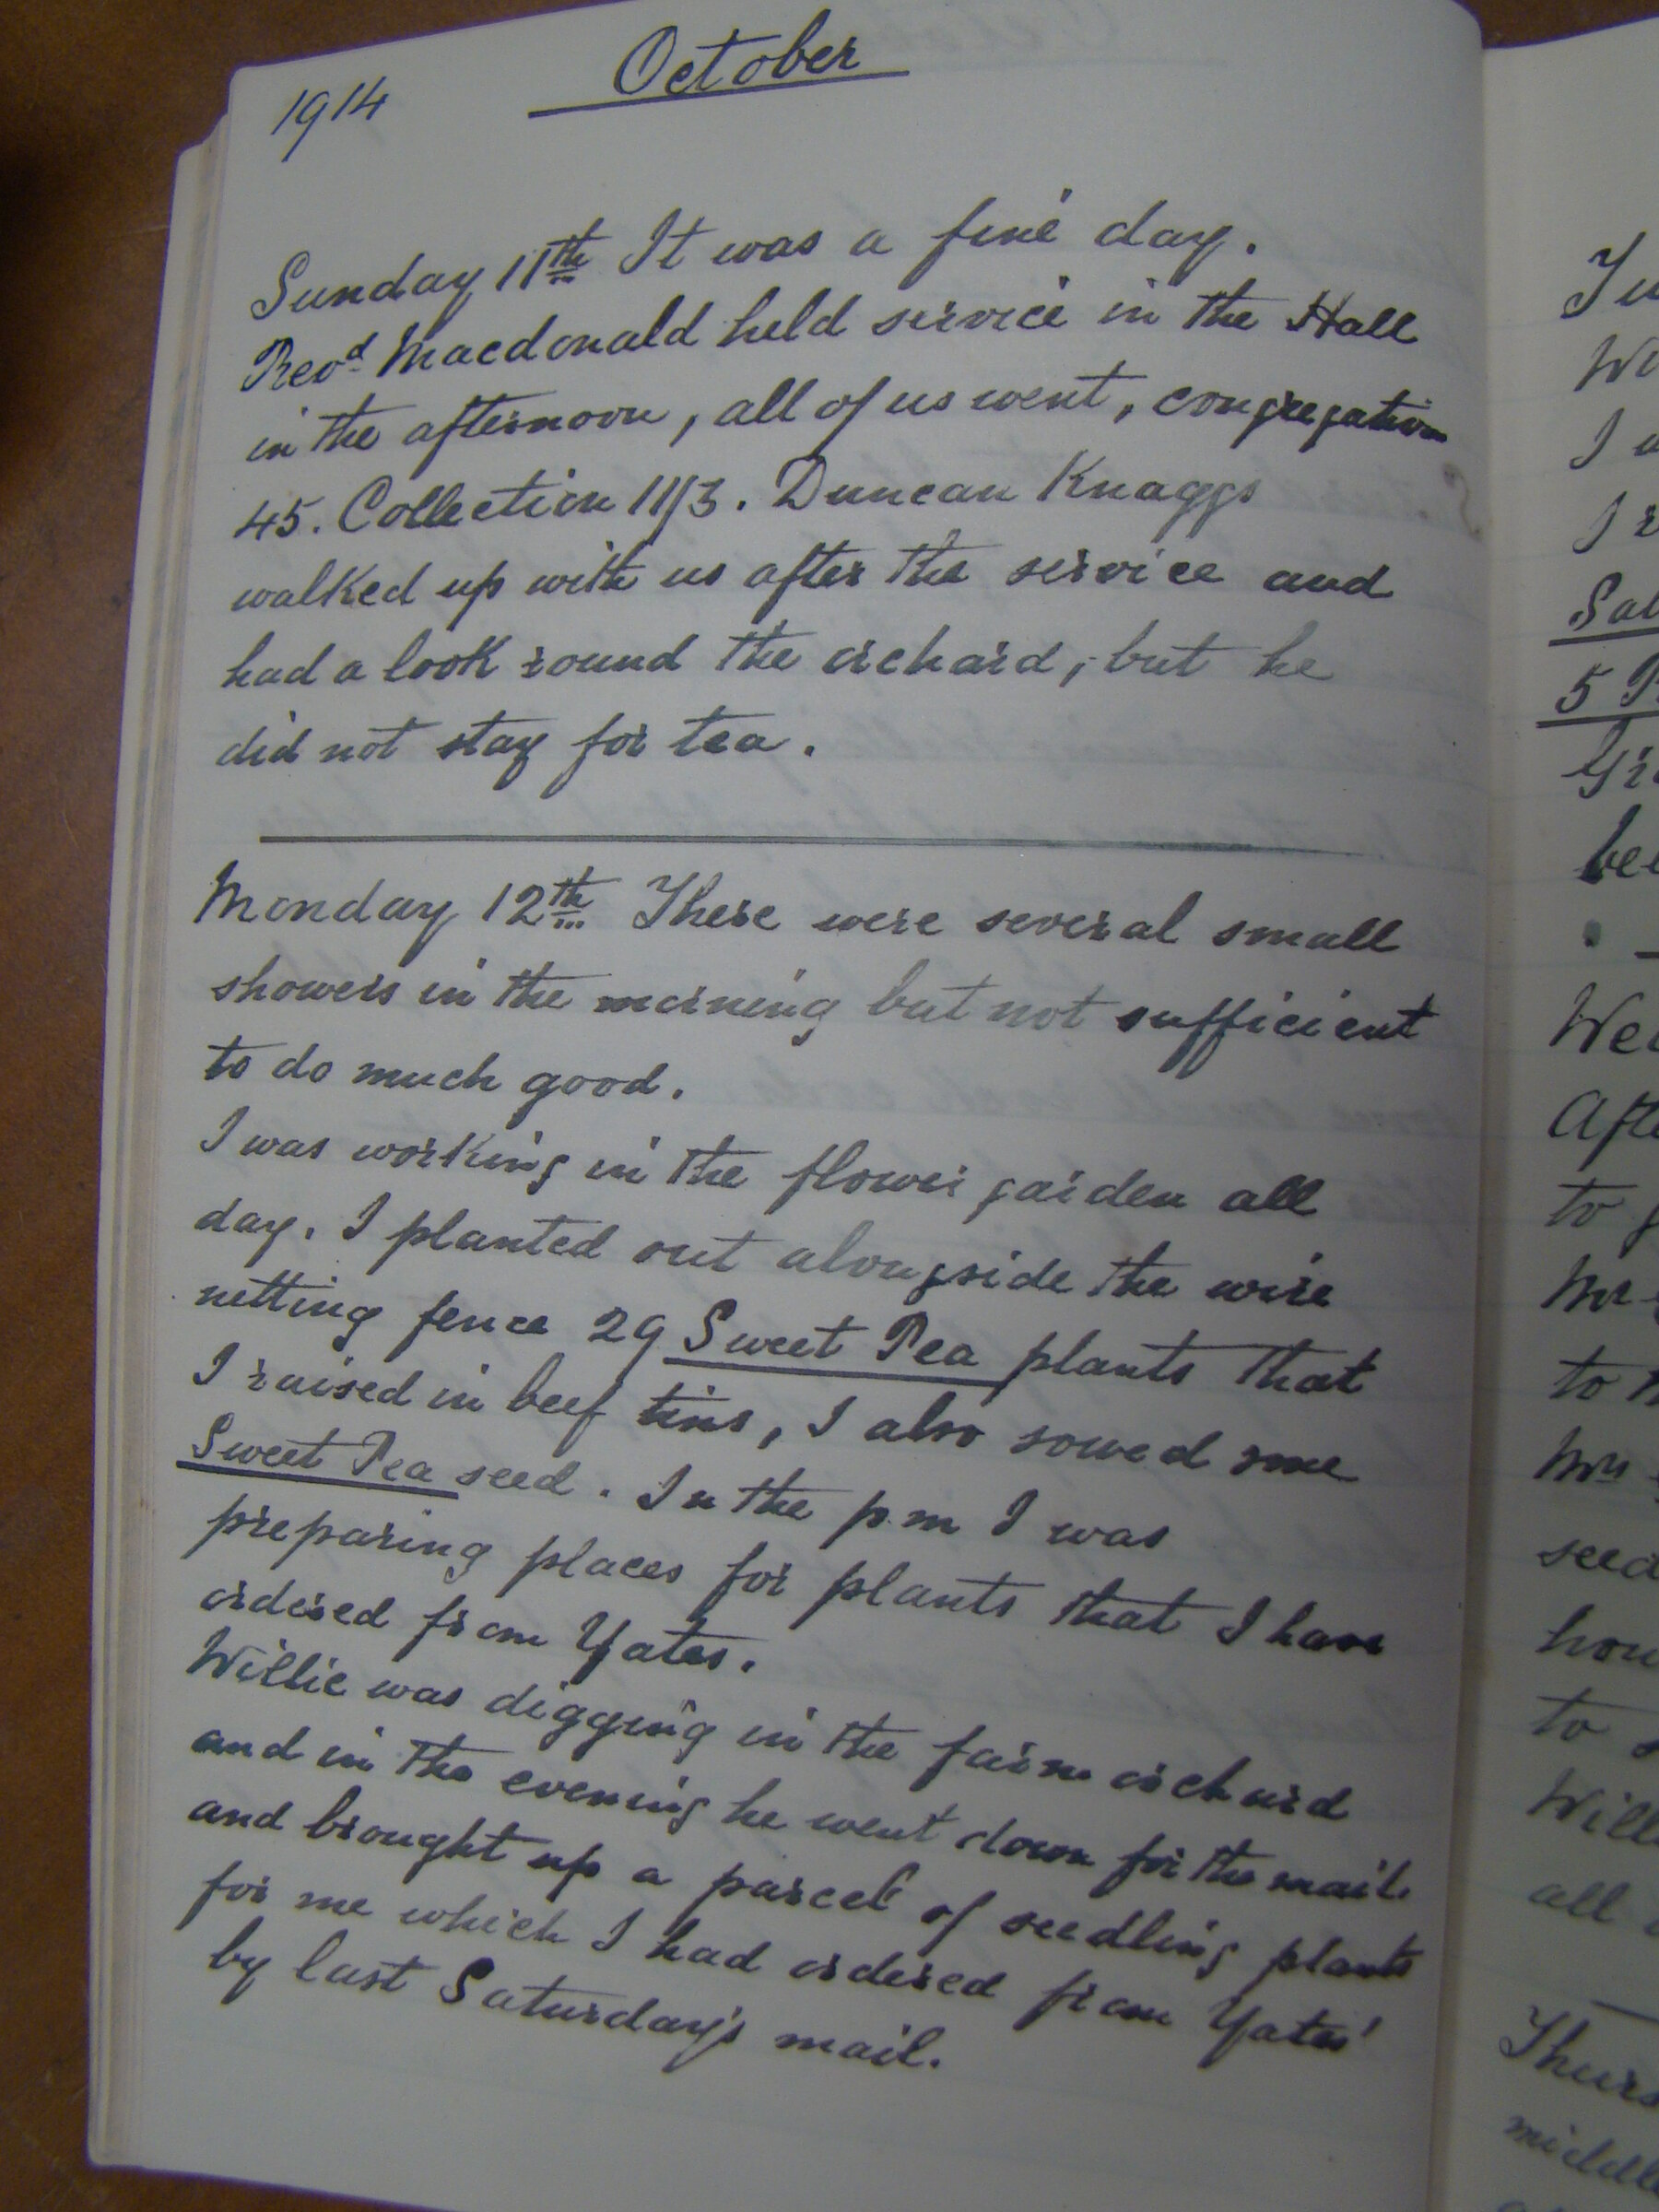 1914
October
Sunday 11th It was a fine day.
Revd Macdonald held service in the Hall
in the afternoon, all of us went, congregation
45. Collection 11/3. Duncan Knaggs
walked up with us after the service and
had a look round the orchard, but he
did not stay for tea.
Monday 12th There were several small
showers in the morning but not sufficient
to do much good.
I was working in the flower garden all
day. I planted out alongside the wire
netting fence 29 Sweet Pea plants that
I raised in beef tins, I also sowed some
Sweet Pea seed. In the p.m I was
preparing places for plants that I have
ordered from Yates.
Willie was digging in the farm orchard
and in the evening he went down for the mail
and brought up a parcel of seedling plants
for me which I had ordered from Yates'
by last Saturday's mail.
Sal
5 P
Gr
be
We
Afte
to g
Mr
to
Mrs
seed
hou
to s
Will
all
Thurs
middle